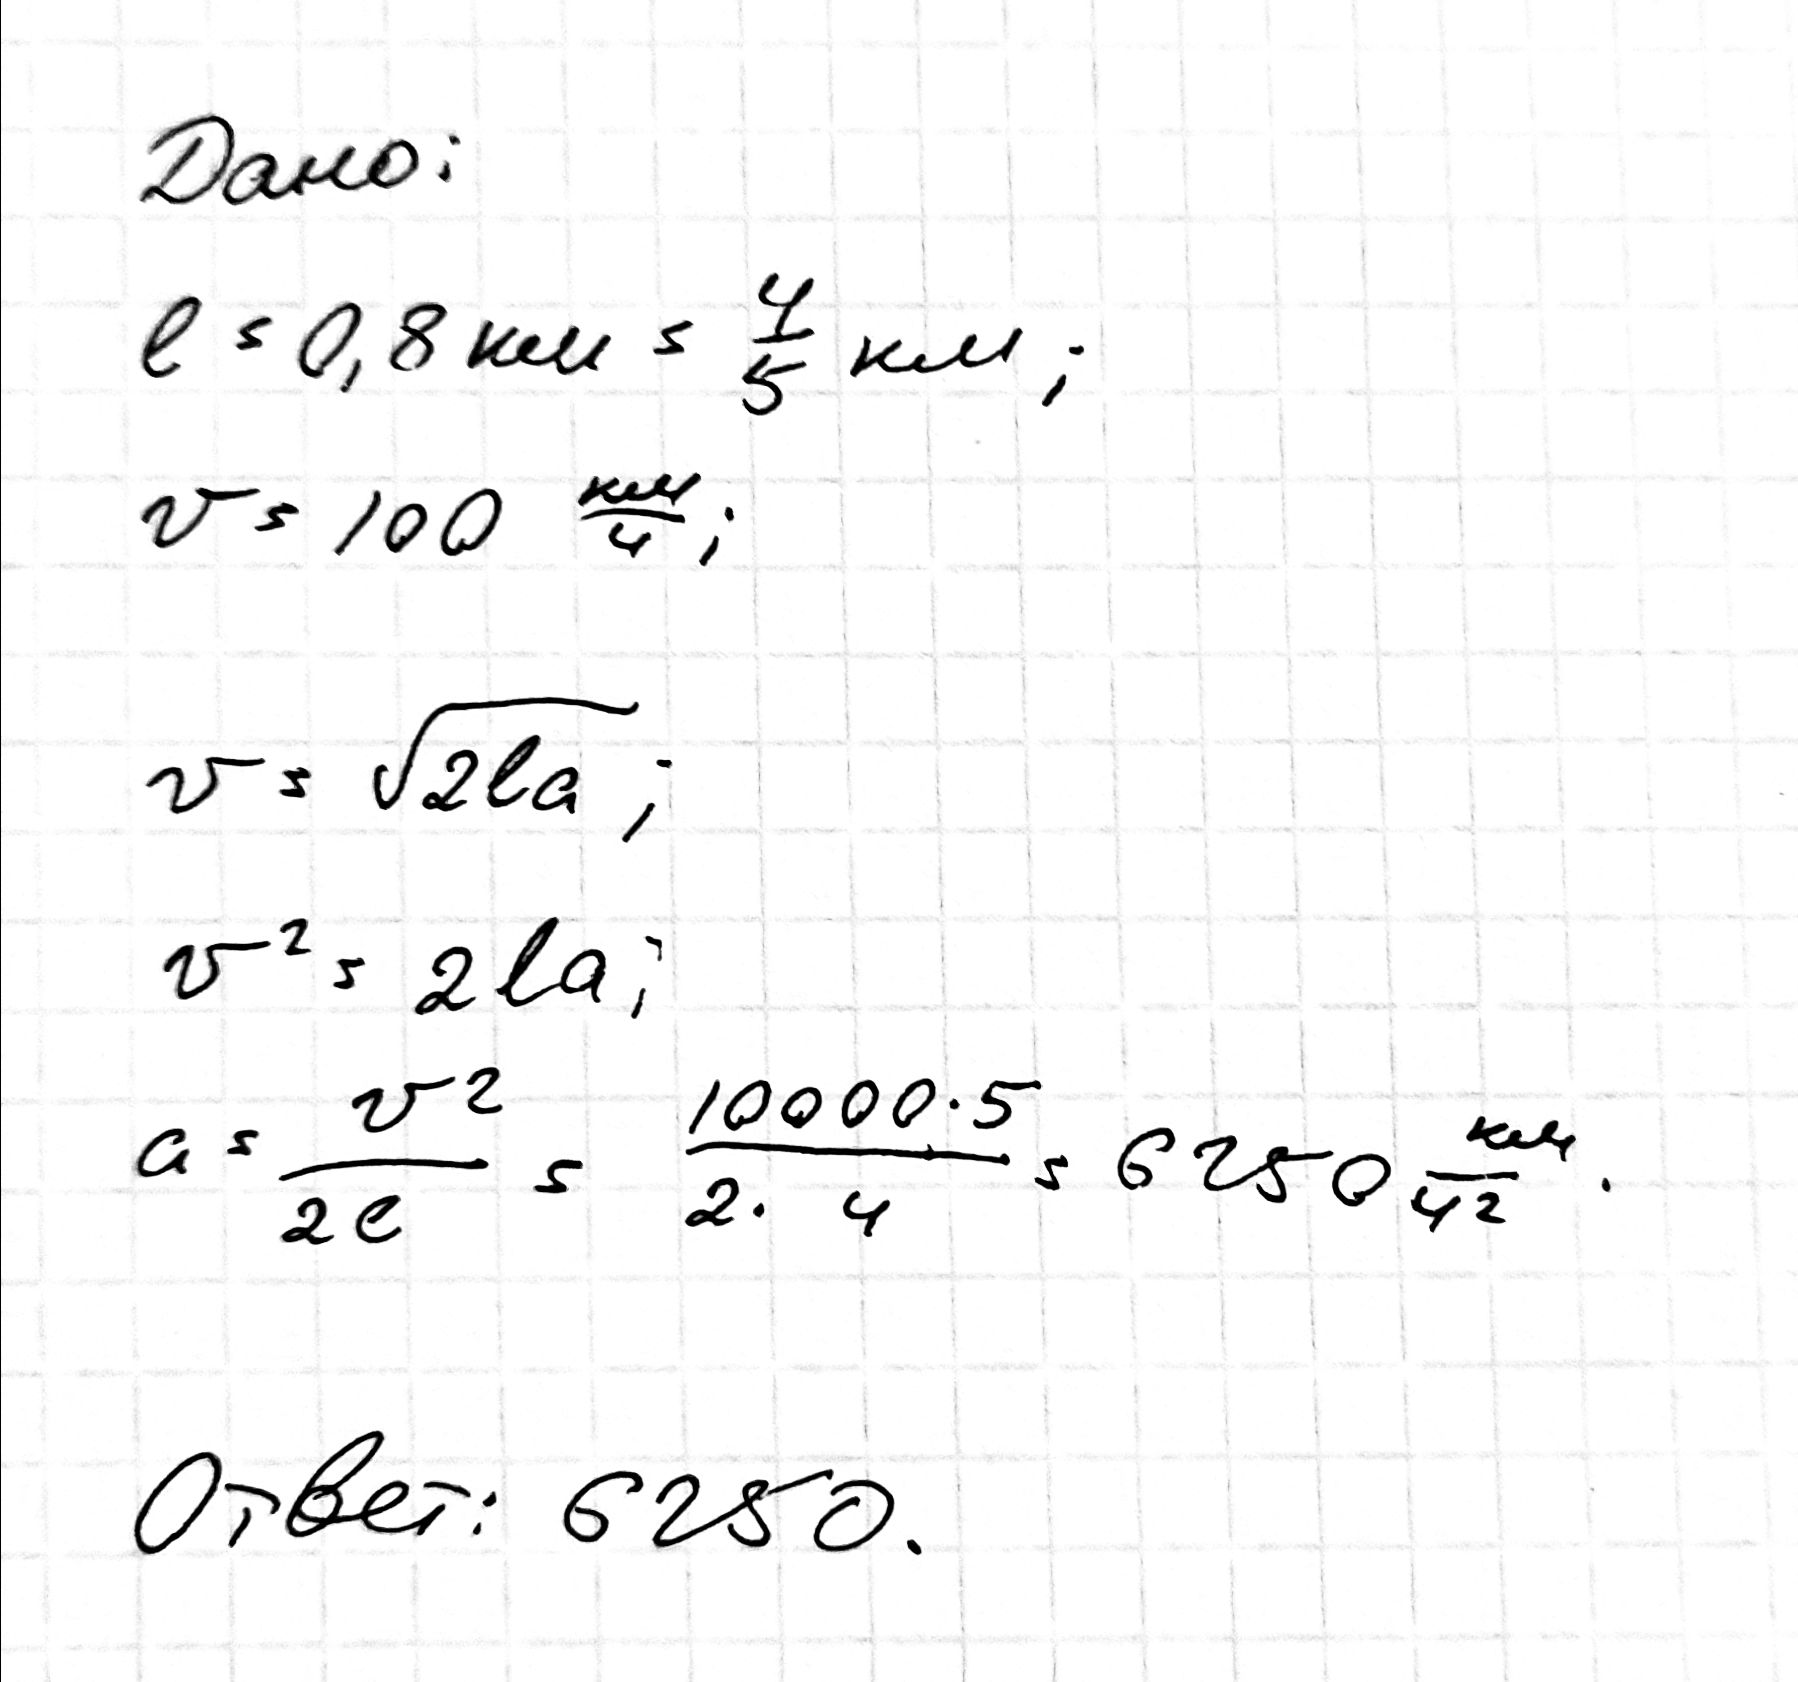 Дано:
l = 0,8 км = 4/5 км;
v = 100 км/ч;
v = √(2la);
v² = 2la;
a = v²/2l = 10000·5/2·4 = 6250 км/ч².
Ответ: 6250.